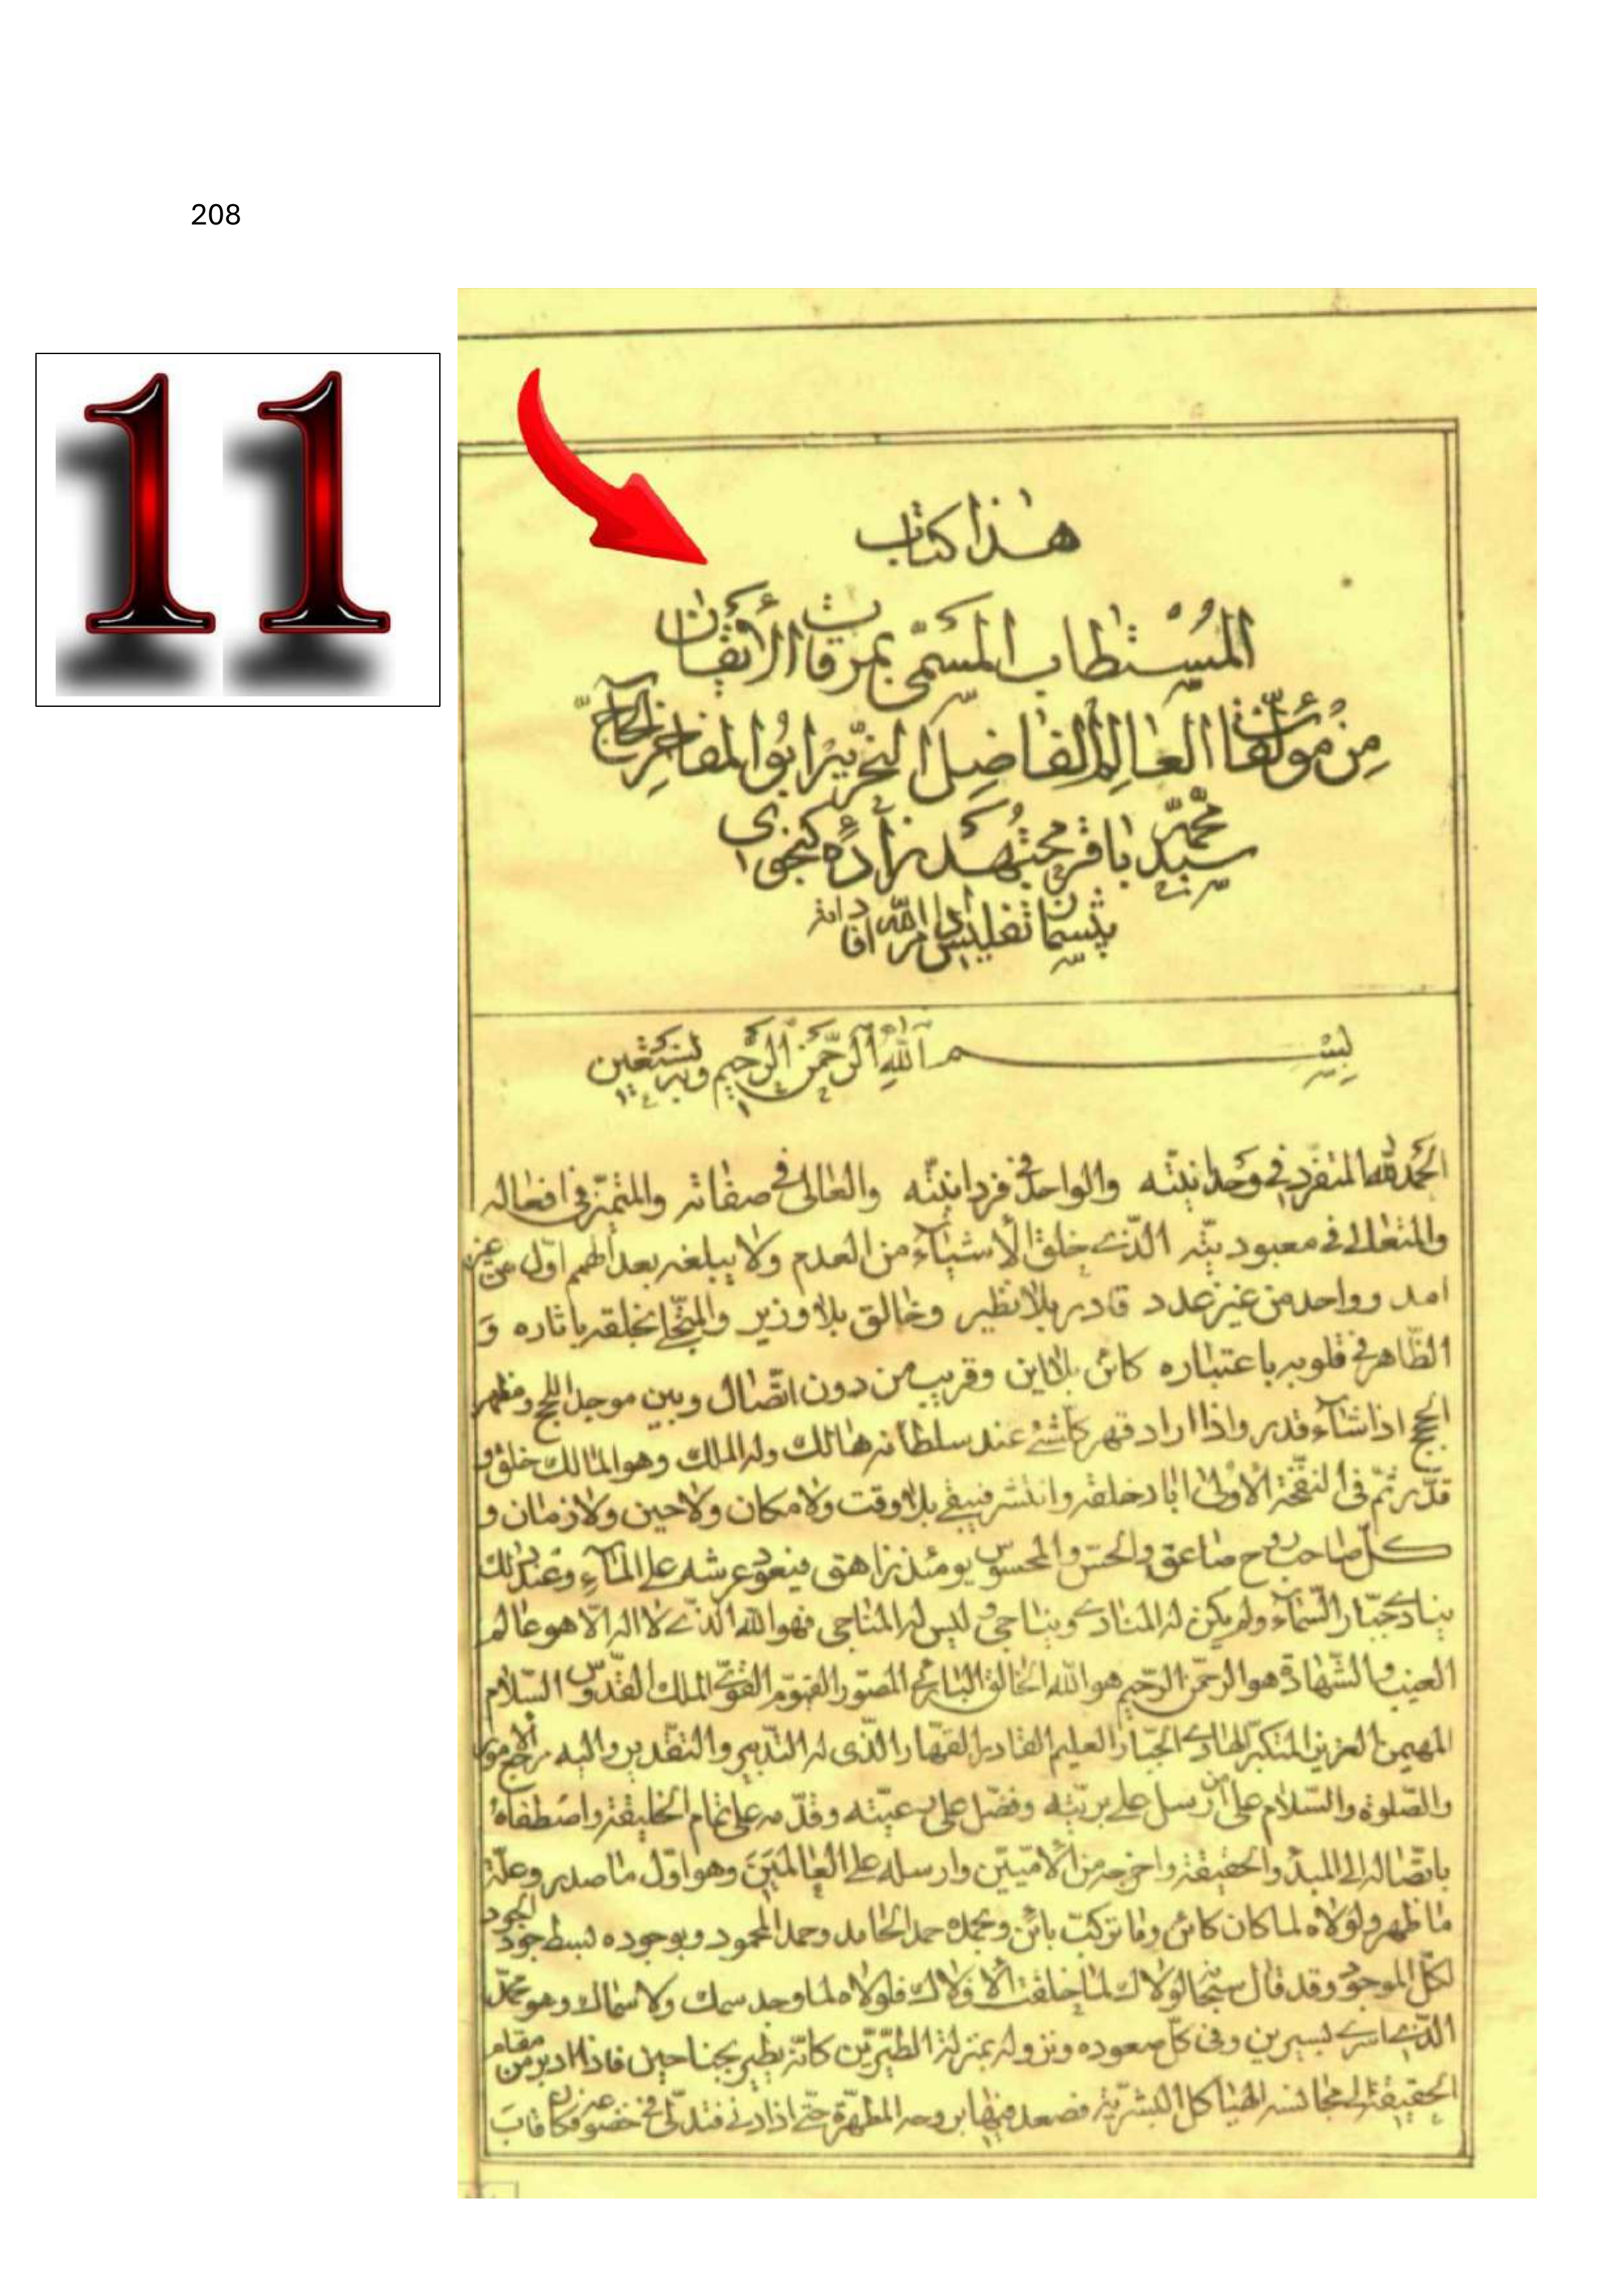 208
11
هذا كتاب
المستطاب المسمى بمرقاة الأيقان
من مؤلفات العالم الفاضل النحرير ابو المفاخر الحاج
سيد محمد باقر مجتهد زاده كنجوى
بسم الله الرحمن الرحيم وبه نستعين
الحمد لله المتفرد في وحدانيته والواحد في فردانيته والعالى في صفاته والمتميز في افعاله
والمتعالى في معبوديته الذى خلق الأشياء من العدم ولا يبلغه بعد الهمم اول من غير
امد وواحد من غير عدد قادر بلا نظير وخالق بلا وزير والمتجلى لخلقه باثاره و
الظاهر في قلوبه باعتباره كائن بلا اين وقريب من دون اتصال وبين موجد اللجج ومظهر
الحجج اذا شاء قدر واذا اراد قهر كلشئ عند سلطانه هالك وله الملك وهو المالك خلق و
قدر ثم في النفخة الأولى اباد خلقه وانتشر فيبقى بلا وقت ولا مكان ولا حين ولا زمان و
كل صاحب روح صاعق والحس والمحسوس يومئذ زاهق فيعود عرشه على الماء وعند ذلك
ينادى جبار السماء ولم يكن له المنادى ويناجى وليس له المناجى فهو الله الذى لا اله الا هو عالم
الغيب والشهادة هو الرحمن الرحيم هو الله الخالق البارئ المصور القيوم القوى الملك القدوس السلام
المهيمن العزيز المتكبر الهادى الجبار العليم القادر القهار الذى له التدبير والتقدير واليه مرجع الامور
والصلوة والسلام على من ارسل على بريته وفضل على رعيته وقدمه على تمام الخليقة واصطفاه
باتصاله الى المبدء والحقيقة واخرجه من الأميين وارسله على العالمين وهو اول ما صدر وعلة
ما ظهر ولولاه لما كان كائن وما تركب بائن وبحمده حمد الحامد وحمد المحمود وبوجوده بسط جود الجود
لكل الموجود وقد قال سبحانه لولاك لما خلقت الأفلاك فلولاه لما وجد سمك ولا سماك وهو محمد
الذى اسرى بسيرين وفى كل صعوده ونزوله بمنزلة الطيرين كانه يطير بجناحين فاذا ادبر من مقام
الحقيقة الى مجانسة الهياكل البشرية فصعد فيها بروحه المطهرة حتى اذا دنى فتدلى في فكان قاب